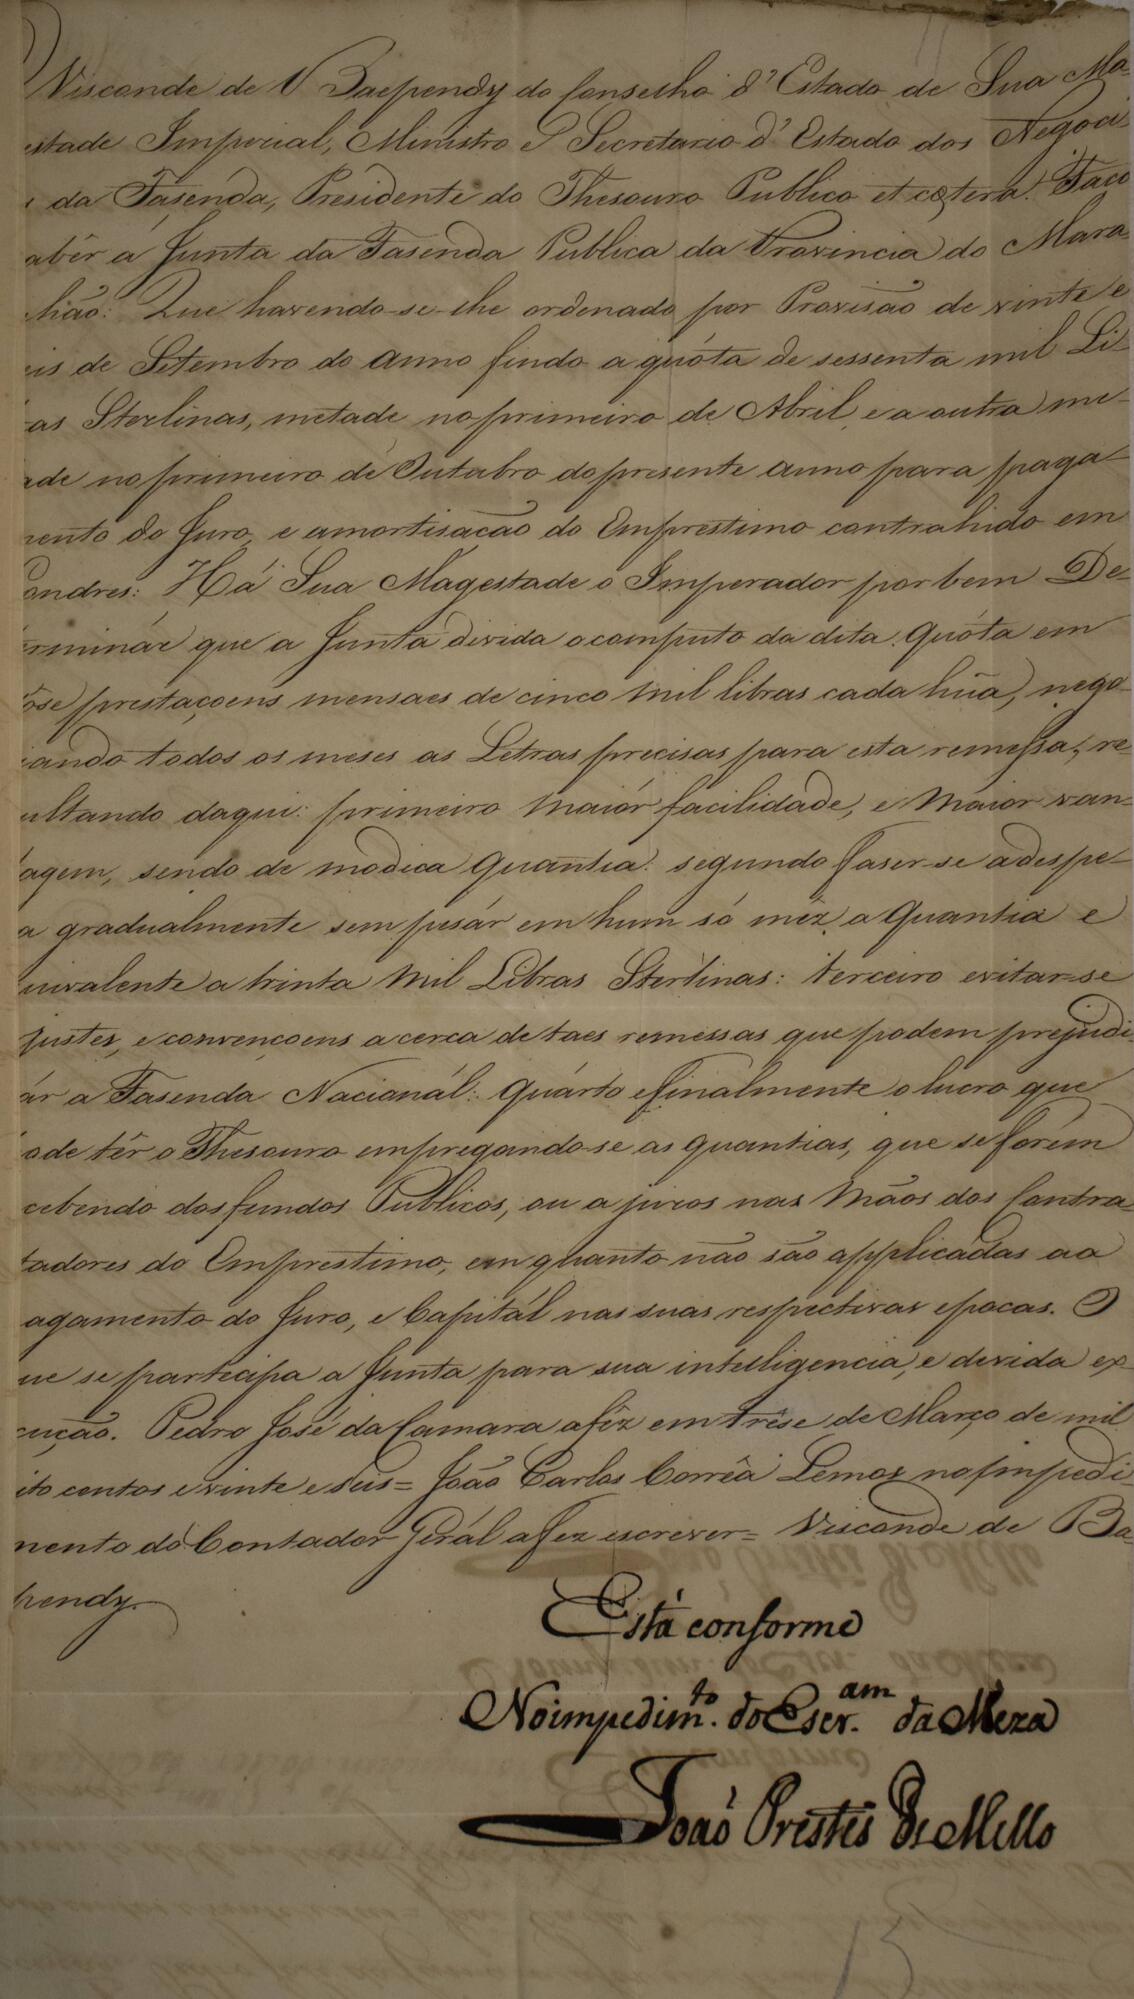 Visconde de Baependy do Conselho d'Estado de Sua Ma-
estade Imperial, Ministro e Secretario d'Estado dos Negoci
da Fasenda, Presidente do Thesouro Publico et cœtera. Faço
abêr a Junta da Fasenda Publica da Provincia do Mara-
hão: Que havendo-se-lhe ordenado por Provisão de vinte e
eis de Setembro do anno findo a quóta de sessenta mil Li-
ras Sterlinas, metade no primeiro de Abril, e a outra me-
ade no primeiro de Outubro do presente anno para paga-
mento do Juro, e amortisacão do Emprestimo contrahido em
ondres: Há Sua Magestade o Imperador por bem De-
rminár que a Junta divida o computo da dita Quóta em
ose prestaçoens mensaes de cinco mil libras cada hũa, nego-
iando todos os meses as Letras precisas para esta remessa, re-
ultando daqui: primeiro maiór facilidade, e maior van-
tagem, sendo de modica quantia: segundo faser-se a despe-
a gradualmente sem pesár em hum só mêz a quantia e
quivalente a trinta mil Libras Sterlinas: terceiro evitar-se
justes, e convençoens a cerca de taes remessas que podem prejudi-
ár a Fasenda Nacionál: Quárto e finalmente o lucro que
óde têr o Thesouro empregando-se as quantias, que se forem
cebendo dos fundos Publicos, ou a juros nas mãos dos Contra-
tadores do Emprestimo, em quanto não são applicadas ao
agamento do Juro, e Capitál nas suas respectivas epocas. O
ue se participa a Junta para sua intelligencia, e devida ex-
cução. Pedro José da Camara a fêz em trêse de Março de mil
ito centos e vinte e seis = João Carlos Corrêa Lemos no impedi-
mento do Contador Gerál a fez escrever = Visconde de Ba-
pendy.
Está conforme
No impedim.to do Escr.am da Meza
João Prestes de Mello